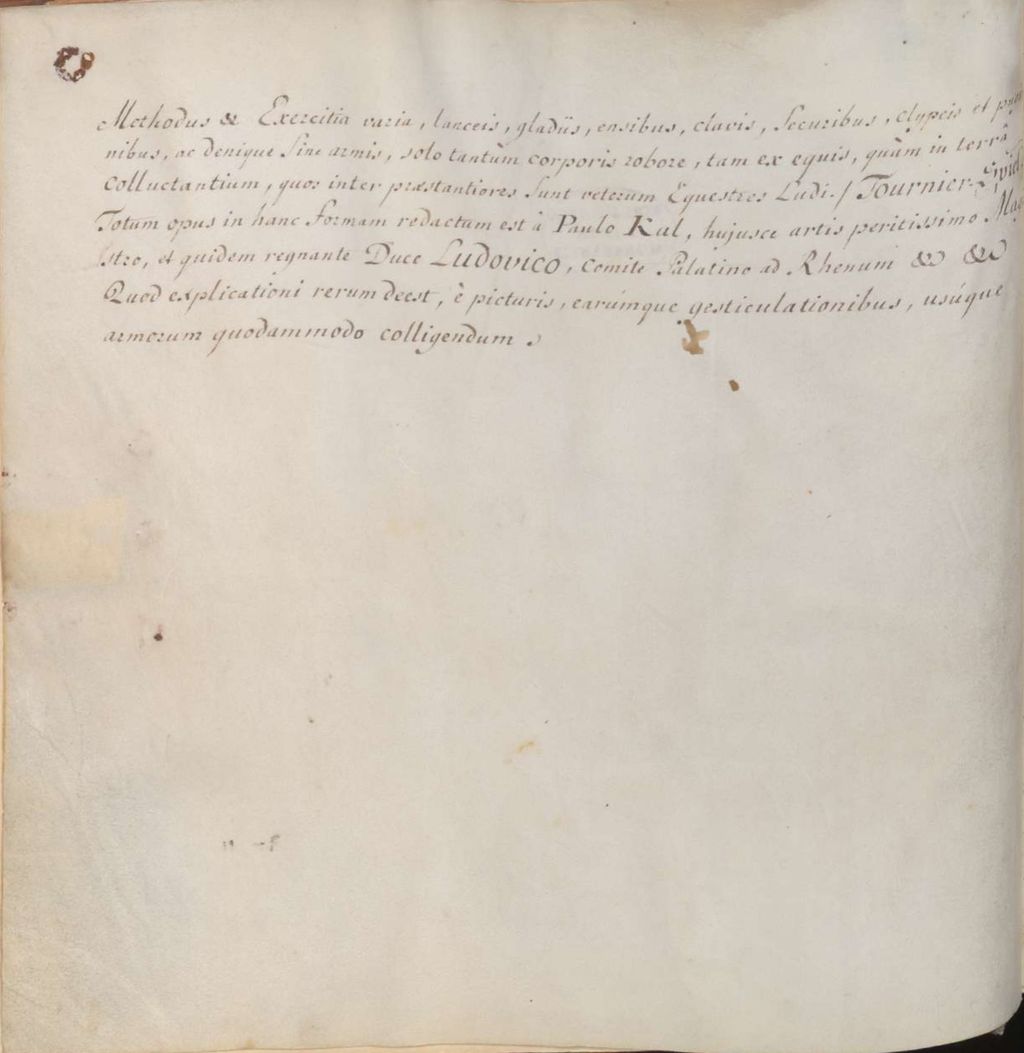 Methodus & Exercitia varia, lanceis, gladiis, ensibus, clavis, securibus, clypeis et pugio
nibus, ac denique sine armis, solo tantùm corporis robore, tam ex equis, quàm in terrâ
Colluctantium, quos inter præstantiores sunt veterum Equestres Ludi ./ Tournier-Spiel
Totum opus in hanc formam redactum est à Paulo Kal, hujusce artis peritissimo Magi
stro, et quidem regnante Duce Ludovico, Comite Palatino ad Rhenum & &
Quod explicationi rerum deest, è picturis, earúmque gesticulationibus, usúque
armorum quodammodo colligendum.